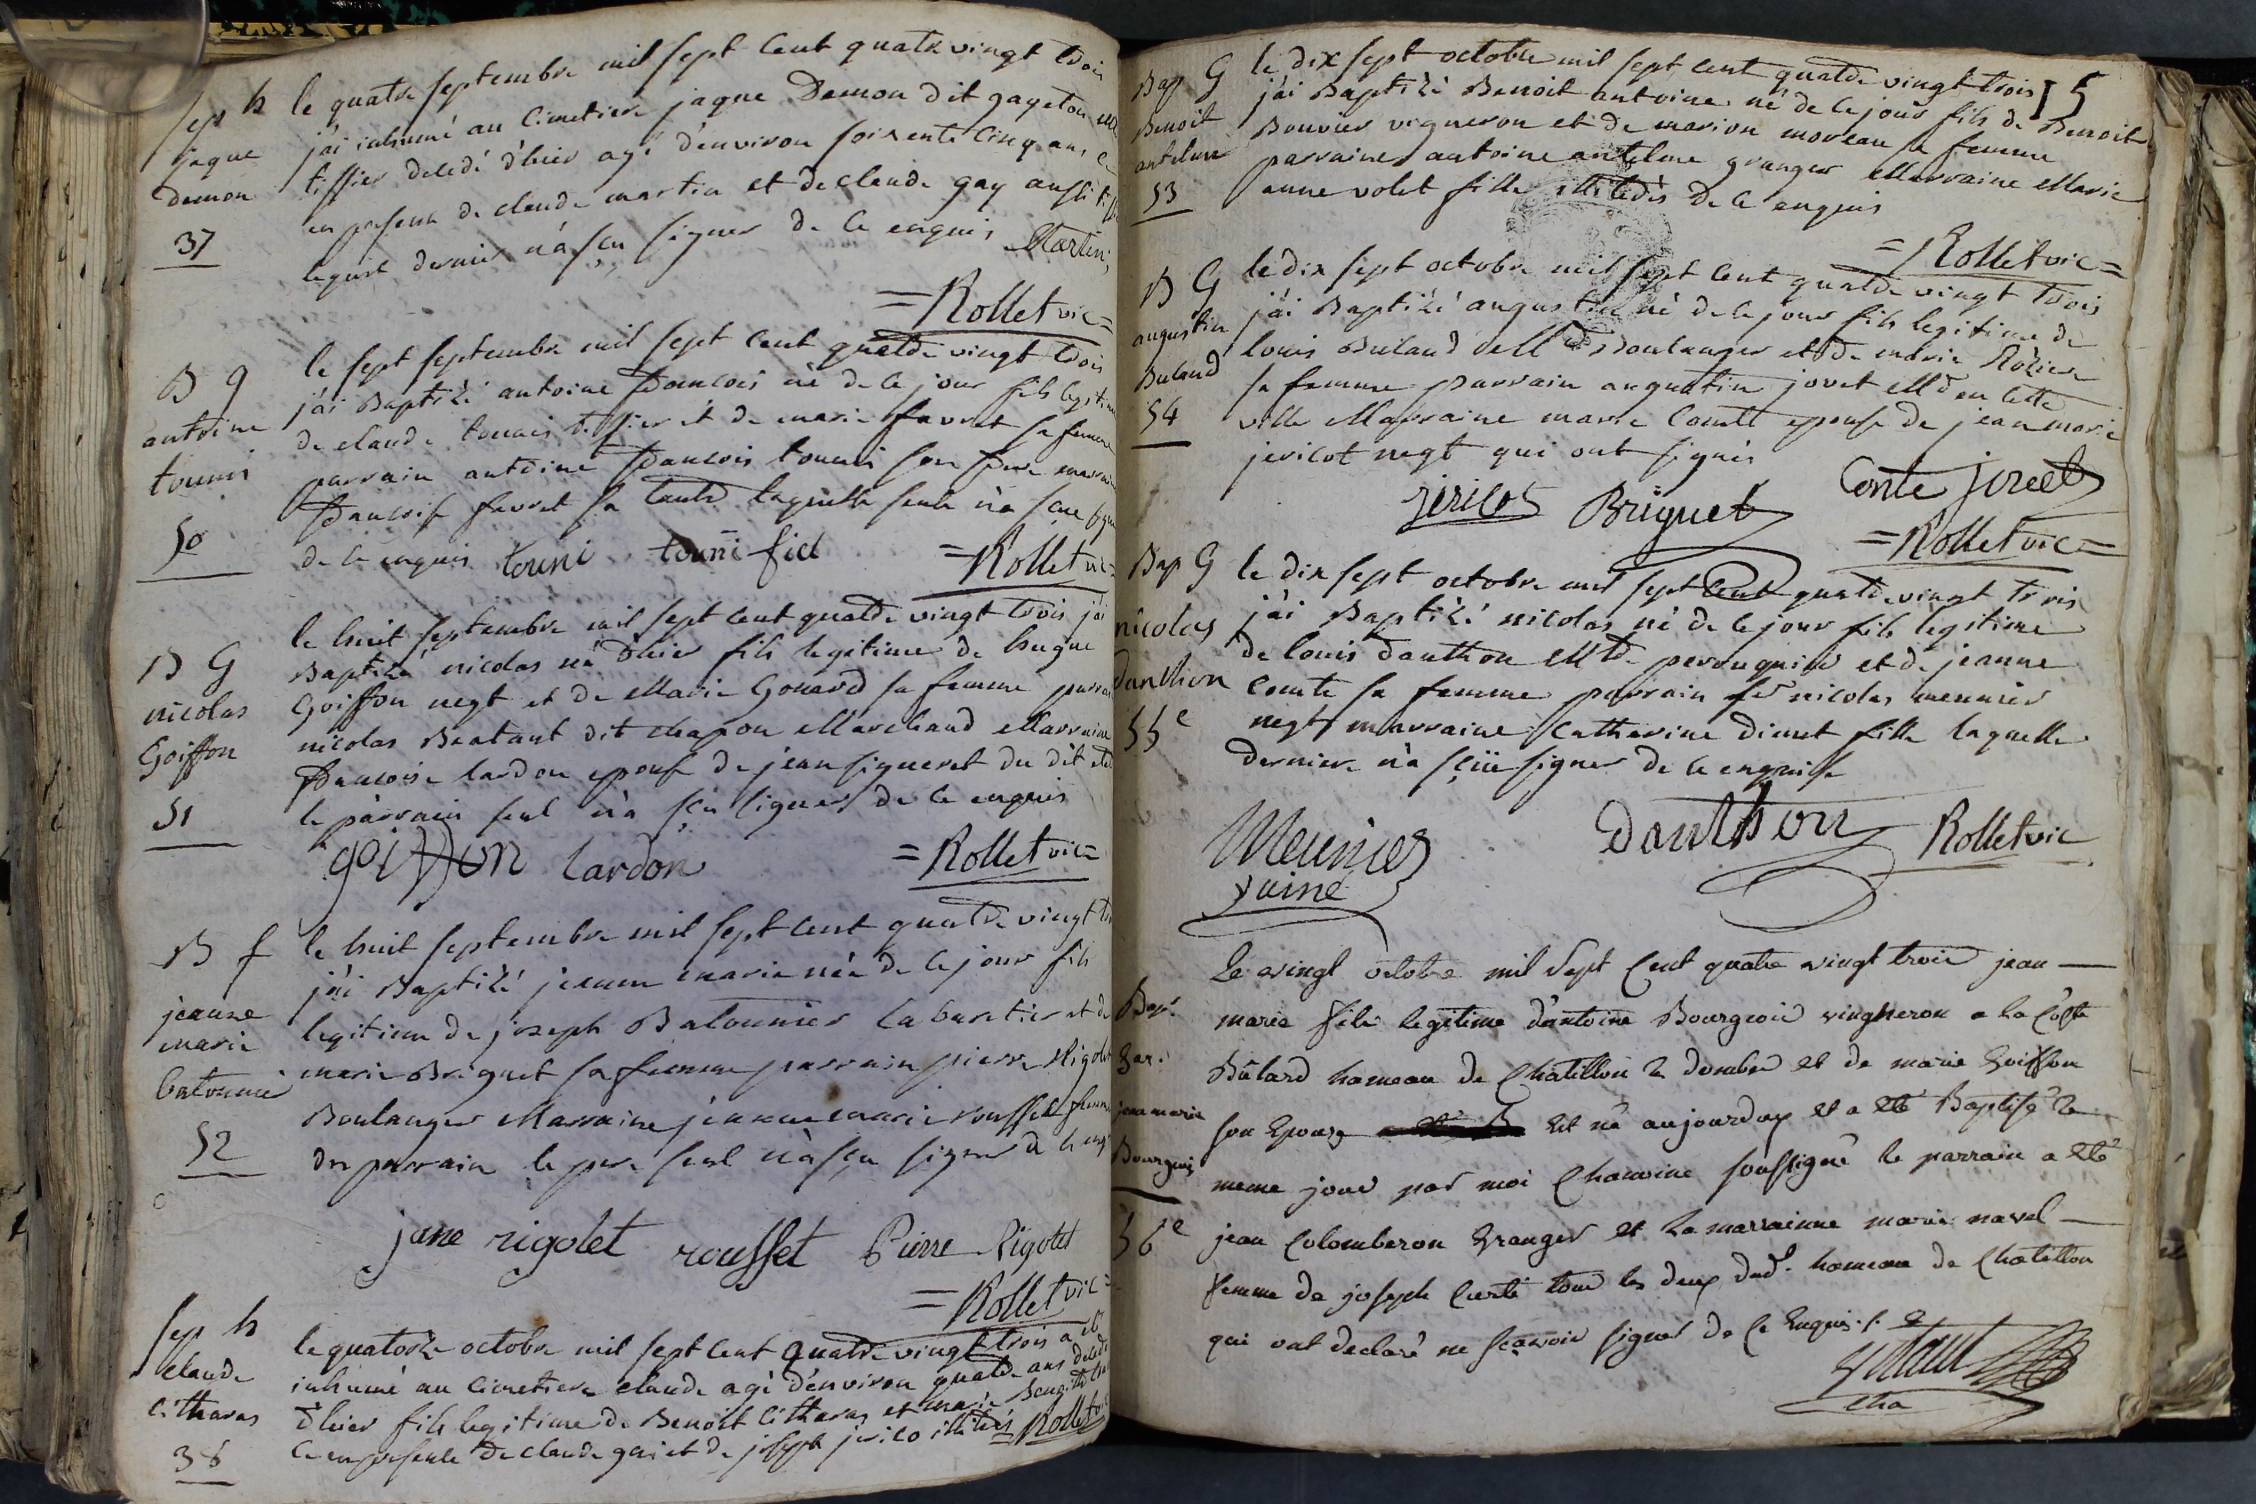 Sep h
jaque
Demon
37
le quatre septembre mil sept cent quatre vingt trois
j'ai inhumé au cimetiere jaque Demon dit gayeton
tissier décédé d'hier agé d'environ soixante cinq ans
en presence de claude martin et de claude gay aussi
lequel dernier n'a sçu signer de ce enquis Martin
= Rollet vic =
B g
antoine
touni
50
le sept septembre mil sept cent quatre vingt trois
j'ai Baptizé antoine francois né de ce jour fils legitime
de claude tissier et de marie favret sa femme
parrain antoine francois touni son frere
francoise favret sa tante laquelle seule n'a sçue
de ce enquis touni touni fiel
= Rollet vic =
B G
nicolas
Goiffon
51
le huit septembre mil sept cent quatre vingt trois j'ai
Baptizé nicolas né d'hier fils legitime de hugue
Goiffon negt et de Marie Gonard sa femme
nicolas Beatant dit chapon Marchand Marraine
francoise lardon epouse de jean signeret du dit
le parrain seul n'a sçu signer de ce enquis
goiffon lardon = Rollet vic =
B f
jeanne
marie
batonnié
52
le huit septembre mil sept cent quatre vingt
j'ai Baptizé jeanne marie née de ce jour fils
legitime de joseph Batonnier Cabaretier et de
marie Briguet sa femme parrain pierre Rigolet
Boulanger Marraine jeanne marie rousset femme
du parrain le pere seul n'a sçu signer de ce
jane rigolet rousset Pierre Rigolet
= Rollet vic =
Sep h
claude
citharas
38
le quatorze octobre mil sept cent quatre vingt trois a été
inhumé au cimetiere claude agé d'environ quatre ans
d'hier fils legitime de Benoit citharas et marie
en presence de claude gai et de joseph jerico illiterés = Rollet
Bap G
Benoit
antelme
53
le dix sept octobre mil sept cent quatre vingt trois
j'ai Baptizé Benoit antoine né de ce jour fils de Benoit
Bouvier vigneron et de marion moreau sa femme
parraine antoine antelme granger Marraine Marie
anne volet fille illiterés de ce enquis
= Rollet vic =
B G
augustin
Buland
54
le dix sept octobre mil sept cent quatre vingt trois
j'ai Baptizé augustin né de ce jour fils legitime de
louis Buland Md Boulanger et de marie Rozier
sa femme parrain augustin jovet Md en cette
ville Marraine marie Comte epouse de jean marie
jericot negt qui ont signés
jericot Briguet Conte joreet
= Rollet vic =
Bap G
nicolas
danthon
55e
le dix sept octobre mil sept cent quatre vingt trois
j'ai Baptizé nicolas né de ce jour fils legitime
de louis danthon Mtre perruquier et de jeanne
comte sa femme parrain sr nicolas meunier
negt marraine Catherine dimet fille laquelle
derniere n'a sçüe signer de ce enquise
Meunier danthon Rollet vic
l'ainé
Bap.
Gar.
jean marie
Bourgeois
56e
Le vingt octobre mil sept Cent quatre vingt trois jean
marie fils legitime d'antoine Bourgeois vingneron a la Coste
Bülard hameau de Chatillon les dombes et de marie Goiffon
son Epouse Est né aujourd'uy et a été Baptisé le
meme jour par moi Chanoine soussigné le parrain a été
jean Colomberon Granger et la marrainne marie navel
femme de joseph Curté tous les deux dud. hameau de Chatillon
qui ont declaré ne sçavoir signer de Ce Enquis
Vitaut
cha